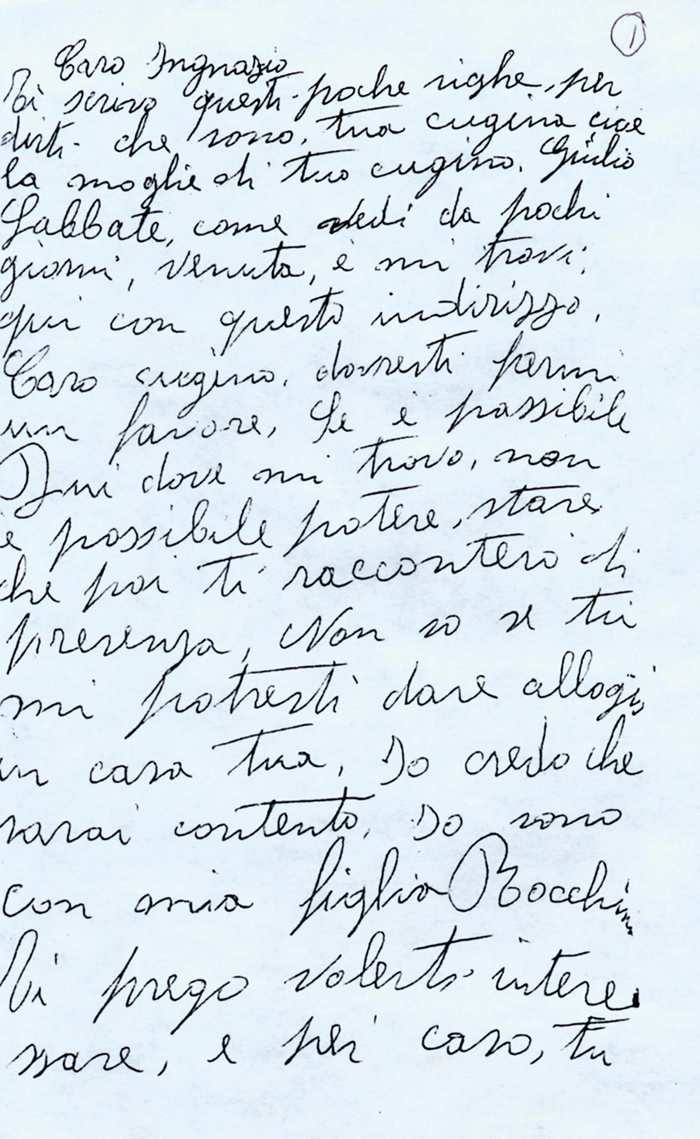 1
Caro Ingnazio
Ti scrivo questi poche righe, per
dirti che sono, tua cugina cioè
la moglie di tuo cugino. Giulio
Labbate, come vedi da pochi
giorni, venuta, e mi trovi,
qui con questo indirizzo,
Caro cugino, dovresti farmi
un favore, Se è possibile
Qui dove mi trovo, non
è possibile potere, stare
che poi ti racconterò di
presenza, Non so se tu
mi potresti dare allogi,
in casa tua, Io credo che
sarai contento, Io sono
con mia figlia
Ti prego volerti intere
ssare, e per caso, tu